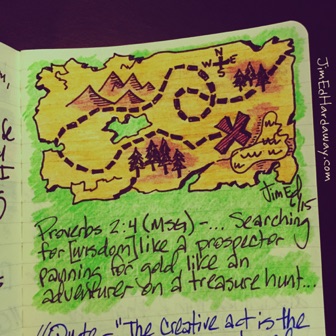 N
W E
S
JimEd
6/15
Proverbs 2:4 (MSG) -... Searching
for [wisdom] like a prospector
panning for gold, like an
adventurer on a treasure hunt...
"The creative act is the
JimEdHardaway.com